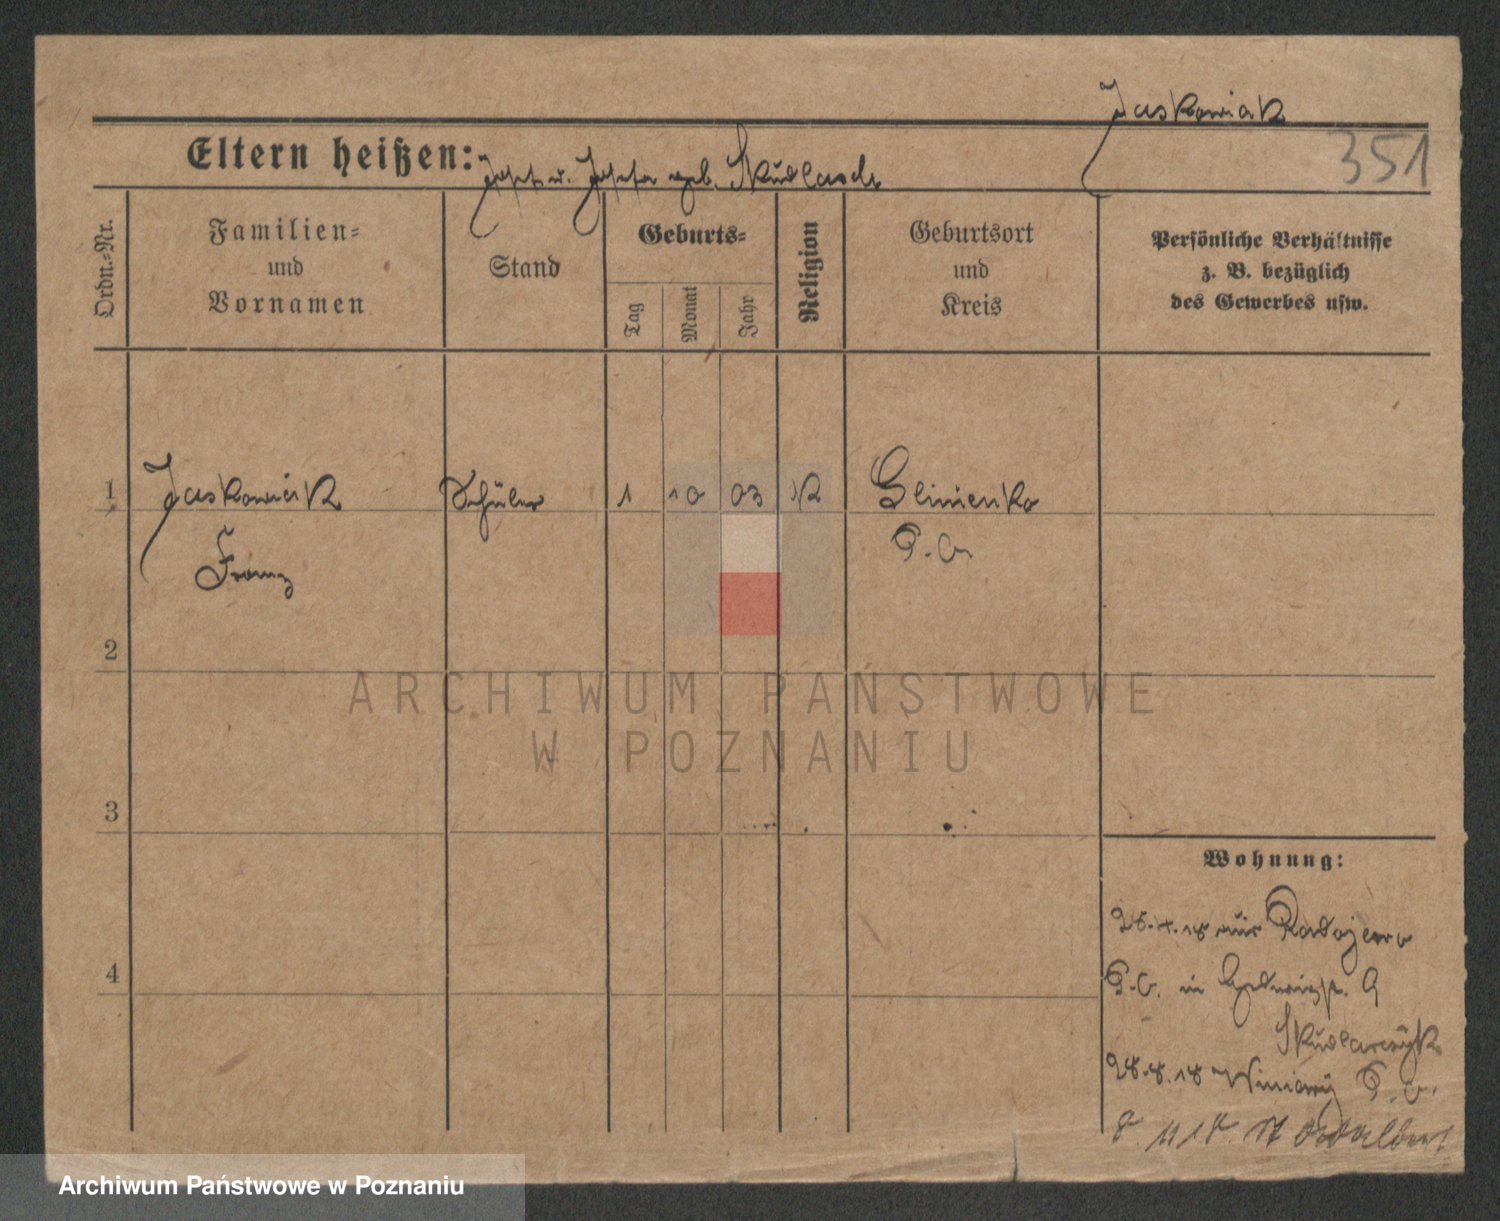 Jaskowiak
351
Eltern heißen: Josef u. Josefa geb. Skudlarek
Ordn.-Nr.
Familien-
und
Vornamen
Stand
Geburts-
Tag
Monat
Jahr
Religion
Geburtsort
und
Kreis
Persönliche Verhältnisse
z. B. bezüglich
des Gewerbes usw.
1
Jaskowiak
Franz
Schüler
1
10
03
K
Glinienko
P. O.
2
3
4
Wohnung:
aus Radojewo
P. O. in
Skudlarczyk
28.8.18 Winiary P. O.
ARCHIWUM PAŃSTWOWE
W POZNANIU
Archiwum Państwowe w Poznaniu